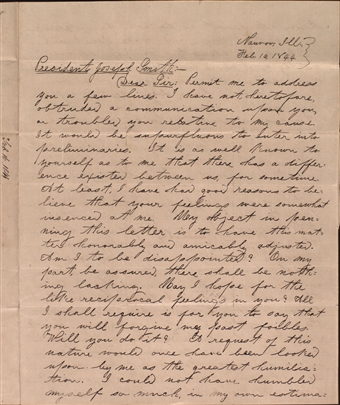 Nauvoo, Ill.
Feb. 14 1844
President Joseph Smith:-
Dear Sir: Permit me to address
you a few lines. I have not heretofore,
obtruded a communication upon you,
or troubled you relative to my cause.
It would be supurfluous to enter into
preliminaries. It is as well known to
yourself as to me that there has a differ-
ence existed between us, for sometime
At least, I have had good reasons to be-
lieve that your feelings were somewhat
insenced at me. My object in pen-
ning this letter is to have this mat-
ter honorably and amicably adjusted.
Am I to be disappointed? On my
part be assured, there shall be noth-
ing lacking. May I hope for the
like reciprocal feelings in you? All
I shall require is for you to say that
you will forgive my past foibles.
Will you do it? A request of this
nature would once have been looked
upon by me as the greatest humilia-
tion. I could not have humbled
myself so much, in my own estima-